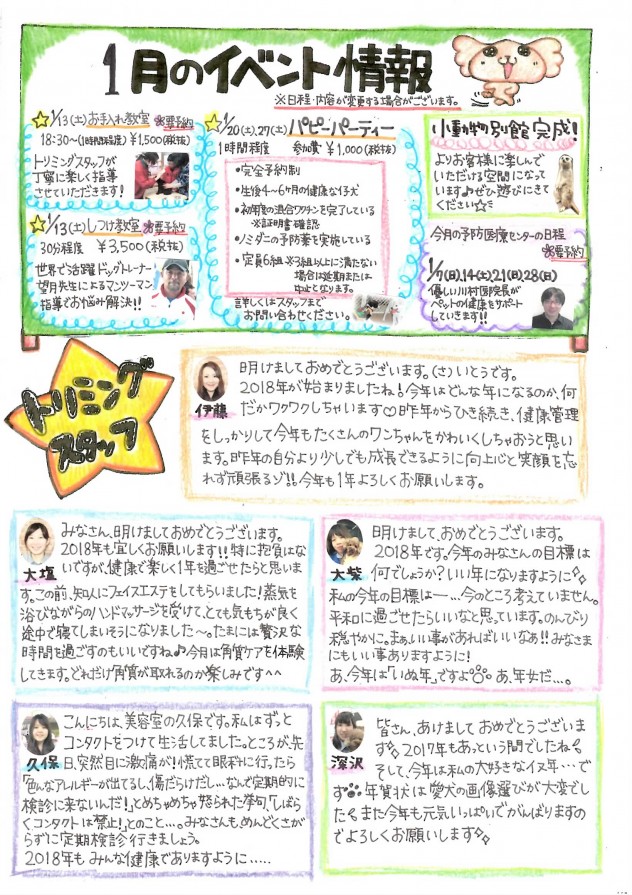 1月のイベント情報
※日程・内容が変更する場合がございます。
1/13(土)お手入れ教室 ※要予約
18:30〜(1時間程度) ¥1,500(税抜)
トリミングスタッフが
丁寧に楽しく指導
させていただきます!
1/13(土)しつけ教室 ※要予約
30分程度 ¥3,500(税抜)
世界で活躍ドッグトレーナー
望月先生によるマンツーマン
指導でお悩み解決!!
1/20(土),27(土) パピーパーティー
1時間程度 参加費 ¥1,000(税抜)
・完全予約制
・生後4〜6ヶ月の健康な仔犬
・初年度の混合ワクチンを完了している
※証明書確認
・ノミダニの予防薬を実施している
・定員6組 ※3組以上に満たない
場合は延期または
中止となります。
詳しくはスタッフまで
お問い合わせください。
小動物別館完成!
よりお客様に楽しんで
いただける空間になって
います♪ぜひ遊びにきて
ください☆ミ
今月の予防医療センターの日程
※要予約
1/7(日),14(土)21(日)28(日)
優しい川村医院長が
ペットの健康をサポート
していきます!!
トリミング
スタッフ
伊藤
明けましておめでとうございます。(さ)いとうです。
2018年が始まりましたね!今年はどんな年になるのか、何
だかワクワクしちゃいます♡昨年からひき続き、健康管理
をしっかりして今年もたくさんのワンちゃんをかわいくしちゃおうと思い
ます。昨年の自分より少しでも成長できるように向上心と笑顔を忘
れず頑張るゾ!!今年も1年よろしくお願いします。
大塩
みなさん、明けましておめでとうございます。
2018年も宜しくお願いします!!特に抱負はな
いですが、健康で楽しく1年を過ごせたらと思いま
す。この前、知人にフェイスエステをしてもらいました!蒸気を
浴びながらのハンドマッサージを受けて、とても気もちが良く
途中で寝てしまいそうになりました〜。たまには贅沢な
時間を過ごすのもいいですね♪今月は角質ケアを体験
してきます。どれだけ角質が取れるのか楽しみです^^
大柴
明けまして、おめでとうございます。
2018年です。今年のみなさんの目標は
何でしょうか?いい年になりますように
私の今年の目標はー…今のところ考えていません。
平和に過ごせたらいいなと思っています。のんびり
穏やかに。まぁ、いい事があればいいなぁ!!みなさま
にもいい事ありますように!
あ、今年は「いぬ年」ですよ あ、年女だ…。
久保
こんにちは、美容室の久保です。私はずっと
コンタクトをつけて生活してました。ところが、先
日、突然目に激痛が!慌てて眼科に行ったら
「色んなアレルギーが出てるし、傷だらけだし…なんで定期的に
検診に来ないんだ!」とめちゃめちゃ怒られた挙句、「しばら
くコンタクトは禁止!」とのこと…。みなさんも、めんどくさが
らずに定期検診行きましょう。
2018年もみんな健康でありますように……
深沢
皆さん、あけましておめでとうございま
す 2017年もあっという間でしたね
そして、今年は私の大好きなイヌ年…で
す 年賀状は愛犬の画像選びが大変でし
た また今年も元気いっぱいでがんばりますの
でよろしくお願いします